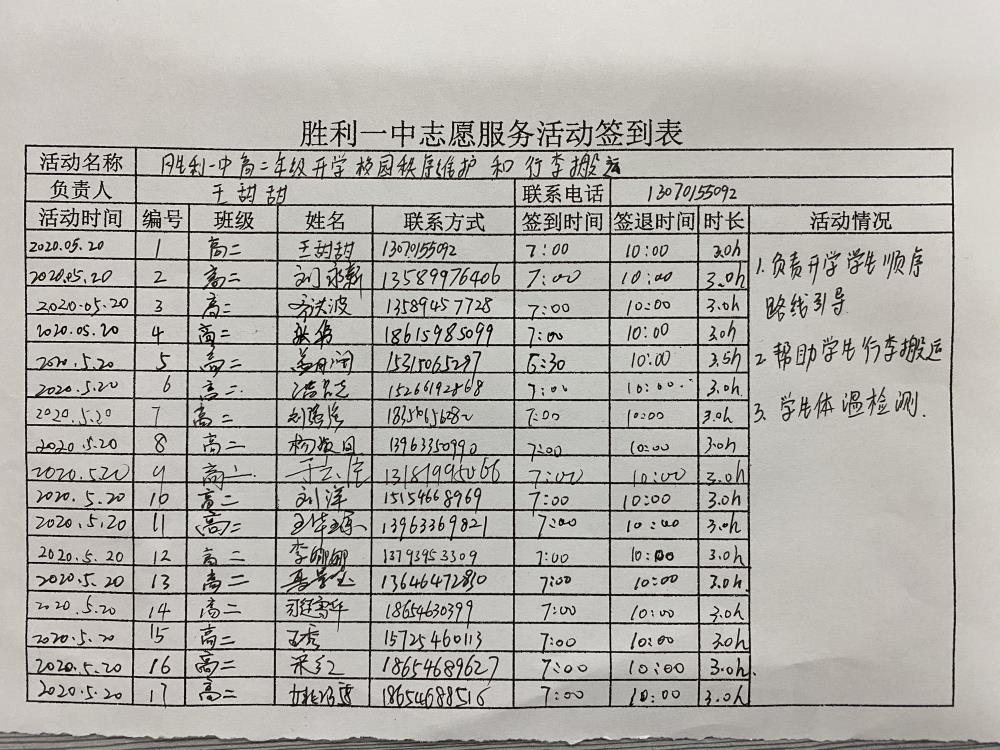 胜利一中志愿服务活动签到表
活动名称 胜利一中高二年级开学校园秩序维护和行李搬运
负责人 王甜甜 联系电话 13070155092
活动时间 编号 班级 姓名 联系方式 签到时间 签退时间 时长 活动情况
2020.05.20 1 高二 王甜甜 13070155092 7:00 10:00 3.0h
2020.05.20 2 高二 刘永新 13589976406 7:00 10:00 3.0h
2020.05.20 3 高二 13589457728 7:00 10:00 3.0h
2020.05.20 4 高二 18615985099 7:00 10:00 3.0h
2020.5.20 5 高二 15315065297 6:30 10:00 3.5h
2020.5.20 6 高二 15266192868 7:00 10:00 3.0h
2020.5.20 7 高二 7:00 10:00 3.0h
2020.5.20 8 高二 13963350990 7:00 10:00 3.0h
2020.5.20 9 高二 7:00 10:00 3.0h
2020.5.20 10 高二 刘洋 15154668969 7:00 10:00 3.0h
2020.5.20 11 高二 13963369821 7:00 10:00 3.0h
2020.5.20 12 高二 李娜娜 13793953309 7:00 10:00 3.0h
2020.5.20 13 高二 13646472830 7:00 10:00 3.0h
2020.5.20 14 高二 18654630399 7:00 10:00 3.0h
2020.5.20 15 高二 王秀 15725460113 7:00 10:00 3.0h
2020.5.20 16 高二 宋红 18654689627 7:00 10:00 3.0h
2020.5.20 17 高二 18654688516 7:00 10:00 3.0h
1.负责开学学生顺序
路线引导
2.帮助学生行李搬运
3.学生体温检测.